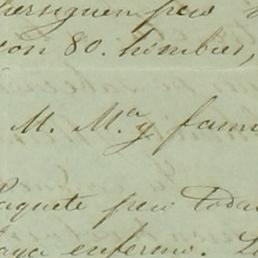 persiguen pero
con 80. hombres,
M. M.ª y fami
Paquete pero toda
haya enfermo. L